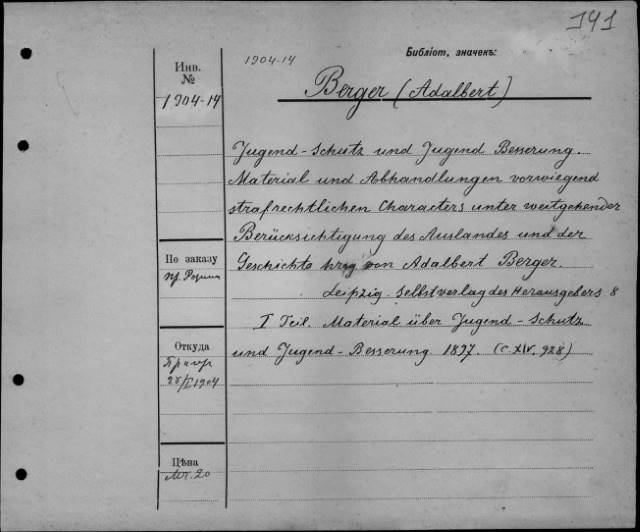 141
Библіот. значекъ:
1904-14
Инв.
№
1904-14
Berger (Adalbert)
Jugend-Schutz und Jugend Besserung.
Material und Abhandlungen vorwiegend
strafrechtlichen Characters unter weitgehender
Berücksichtigung des Auslandes und der
Geschichte hrsg von Adalbert Berger.
Leipzig. Selbstverlag des Herausgebers 8
I Teil. Material über Jugend-Schutz
und Jugend-Besserung 1897. (C. XIV. 928)
По заказу
пр.
Откуда
1904
Цѣна
20